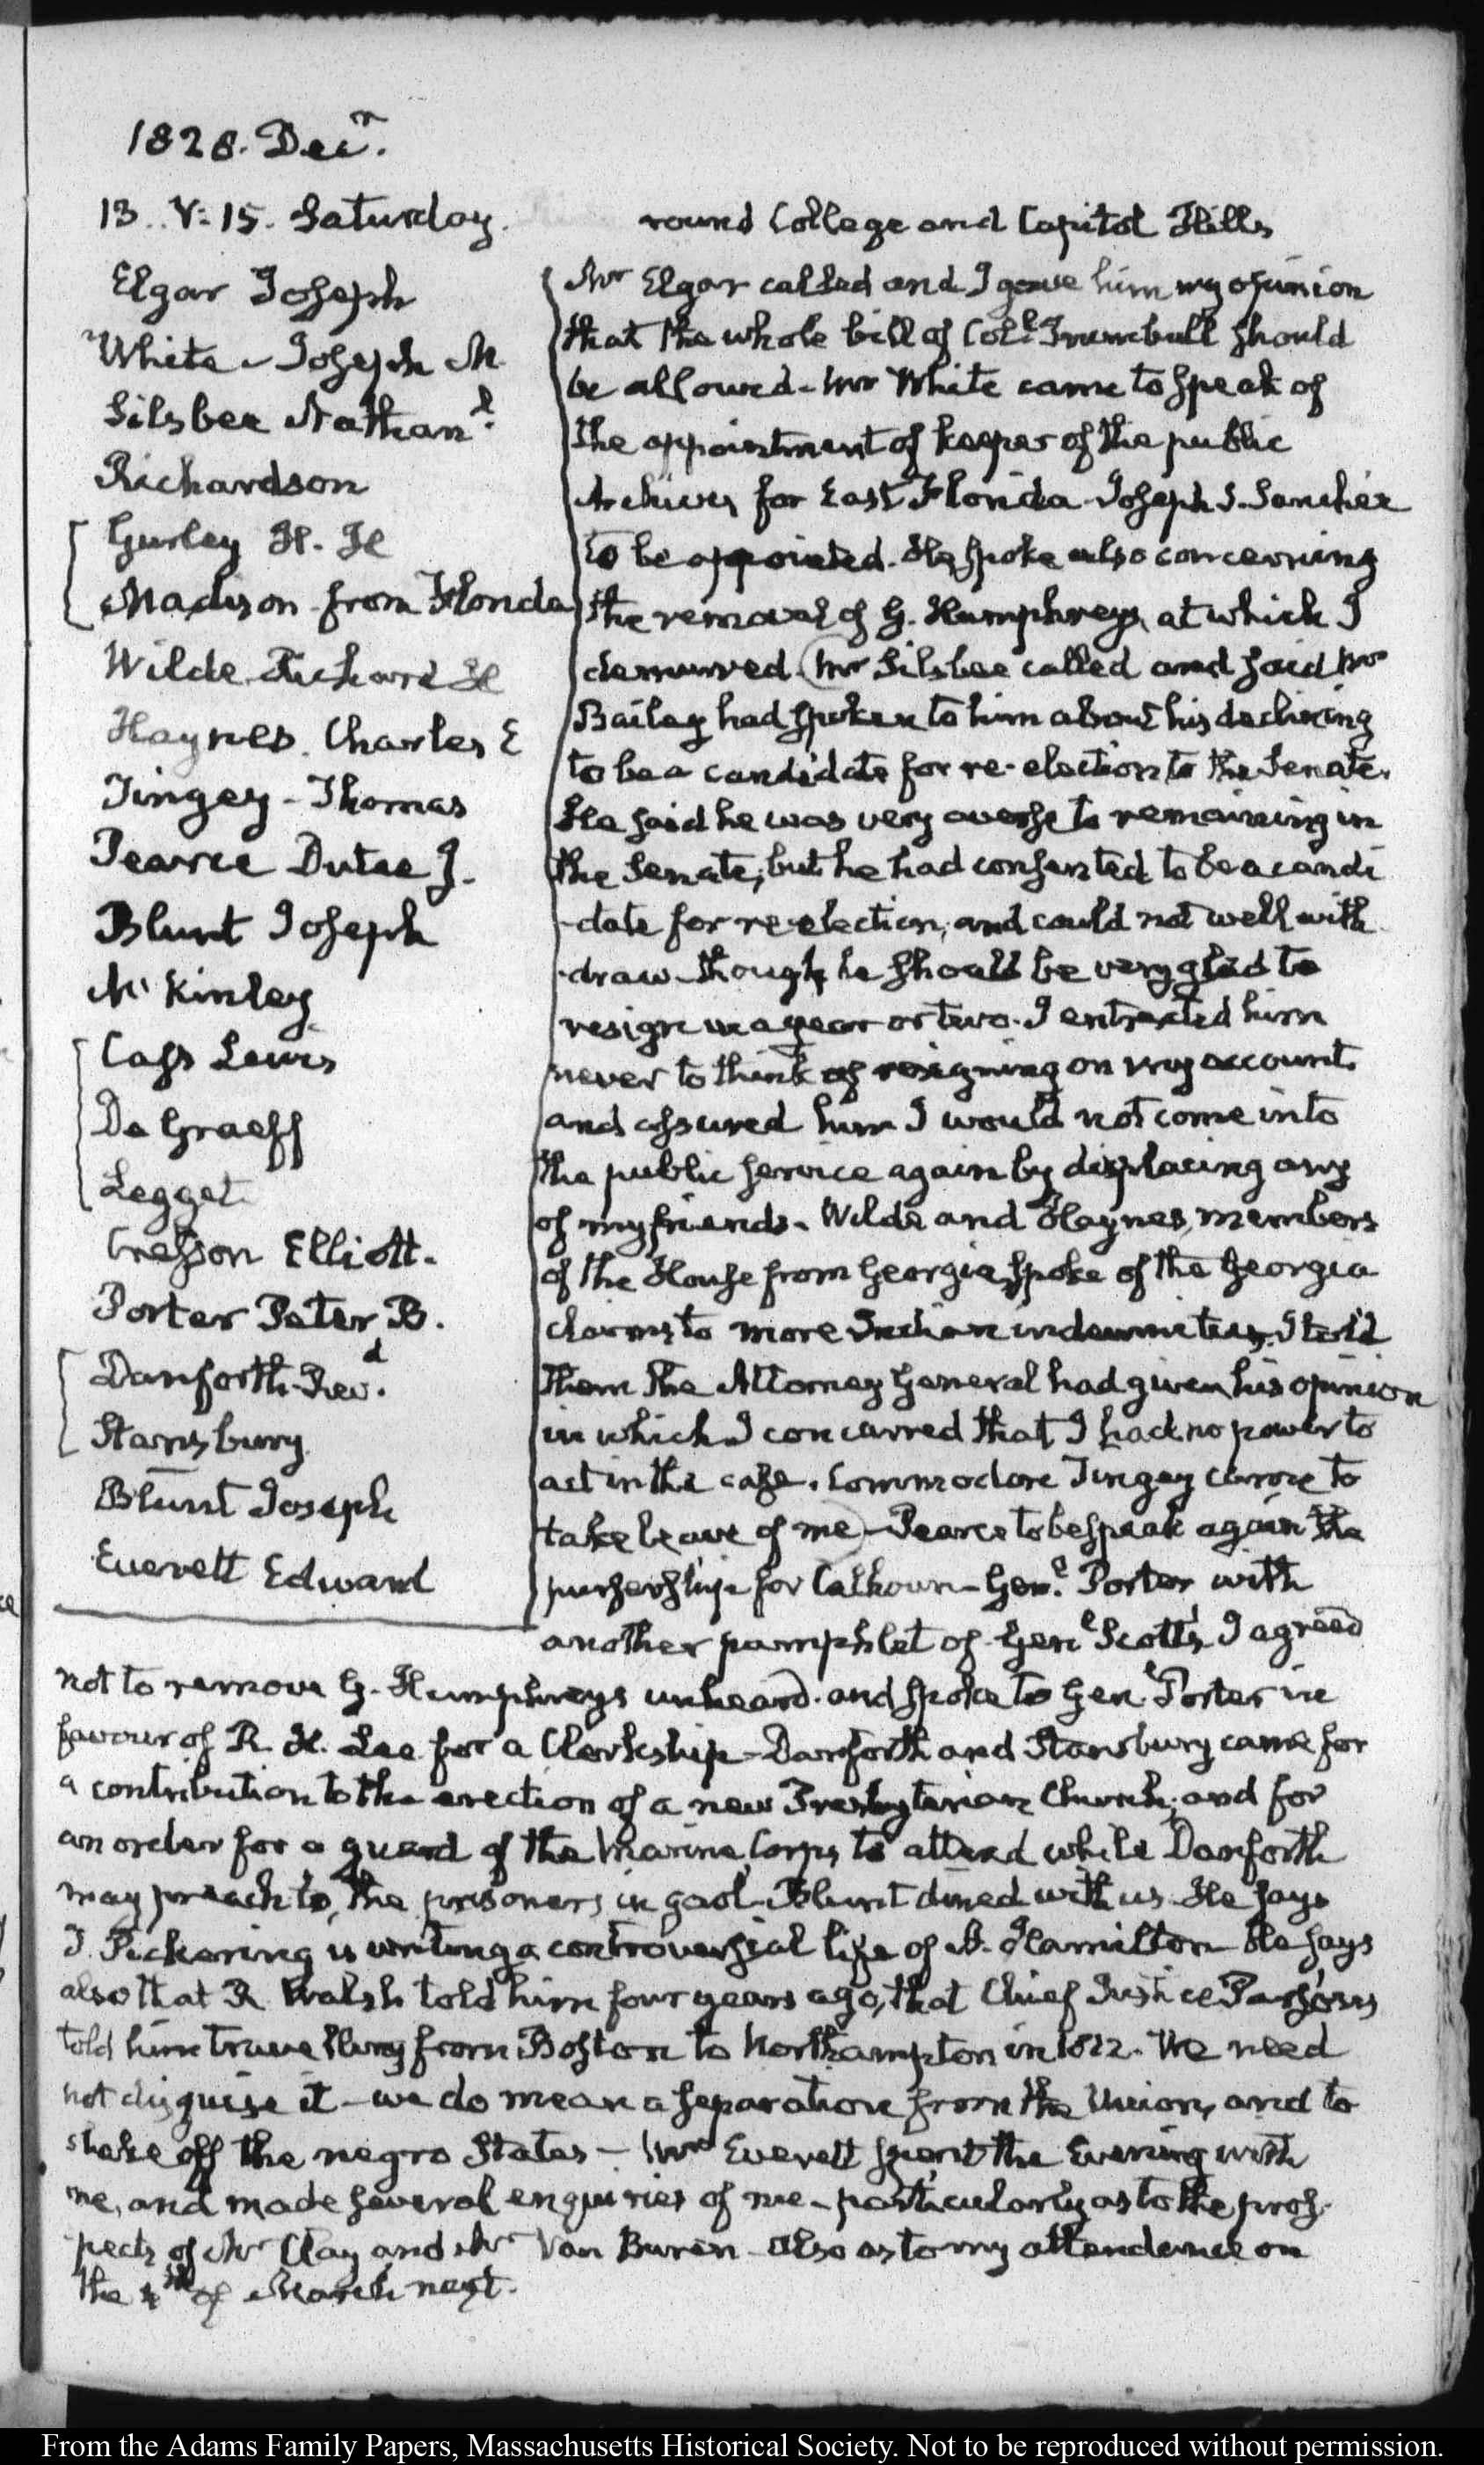 1828. Decr.
13. V:15. Saturday.
round College and Capitol Hills
Elgar Joseph
White - Joseph M.
Silsbee Nathanl.
Richardson
Gurley H. H
Madison from Florida
Wilde Richard H
Haynes. Charles E
Tingey - Thomas
Pearce Dutee J.
Blunt Joseph
McKinley
Cass Lewis
De Graeff
Legget
Cresson Elliott.
Porter Peter B.
Danforth Revd.
Stansbury.
Blunt Joseph
Everett Edward
Mr Elgar called and I gave him my opinion
that the whole bill of Coll. Trumbull should
be allowed - Mr White came to speak of
the appointment of keeper of the public
Archives for East Florida Joseph S. Sanchez
to be appointed. He spoke also concerning
the removal of G. Humphreys, at which I
demurred. Mr Silsbee called and said Mr
Bailey had spoken to him about his declining
to be a candidate for re-election to the Senate.
He said he was very averse to remaining in
the Senate; but he had consented to be a candi
-date for re-election, and could not well with
-draw though he should be very glad to
resign in a year or two. I entreated him
never to think of resigning on my account
and assured him I would not come into
the public service again by displacing any
of my friends. Wilde and Haynes, members
of the House from Georgia, spoke of the Georgia
claims to more Indian indemnities. I told
them the Attorney General had given his opinion
in which I concurred that I had no power to
act in the case. Commodore Tingey came to
take leave of me - Pearce to bespeak again the
pursership for Calhoun - Genl. Porter with
another pamphlet of Genl Scott's, I agreed
not to remove G. Humphreys unheard. and spoke to Genl Porter in
favour of R. H. Lee for a Clerkship - Danforth and Stansbury came for
a contribution to the erection of a new Presbyterian Church; and for
an order for a guard of the Marine Corps to attend while Danforth
may preach to the prisoners in gaol. Blunt dined with us. He says
T. Pickering is writing a controversial life of A. Hamilton - He says
also that R. Walsh told him four years ago, that Chief Justice Parsons
told him travelling from Boston to Northampton in 1812. We need
not disguise it - we do mean a separation from the Union, and to
shake off the negro States - Mr Everett spent the Evening with
me, and made several enquiries of me - particularly as to the pros-
pects of Mr Clay and Mr Van Buren - also as to my attendance on
the 4th of March next.